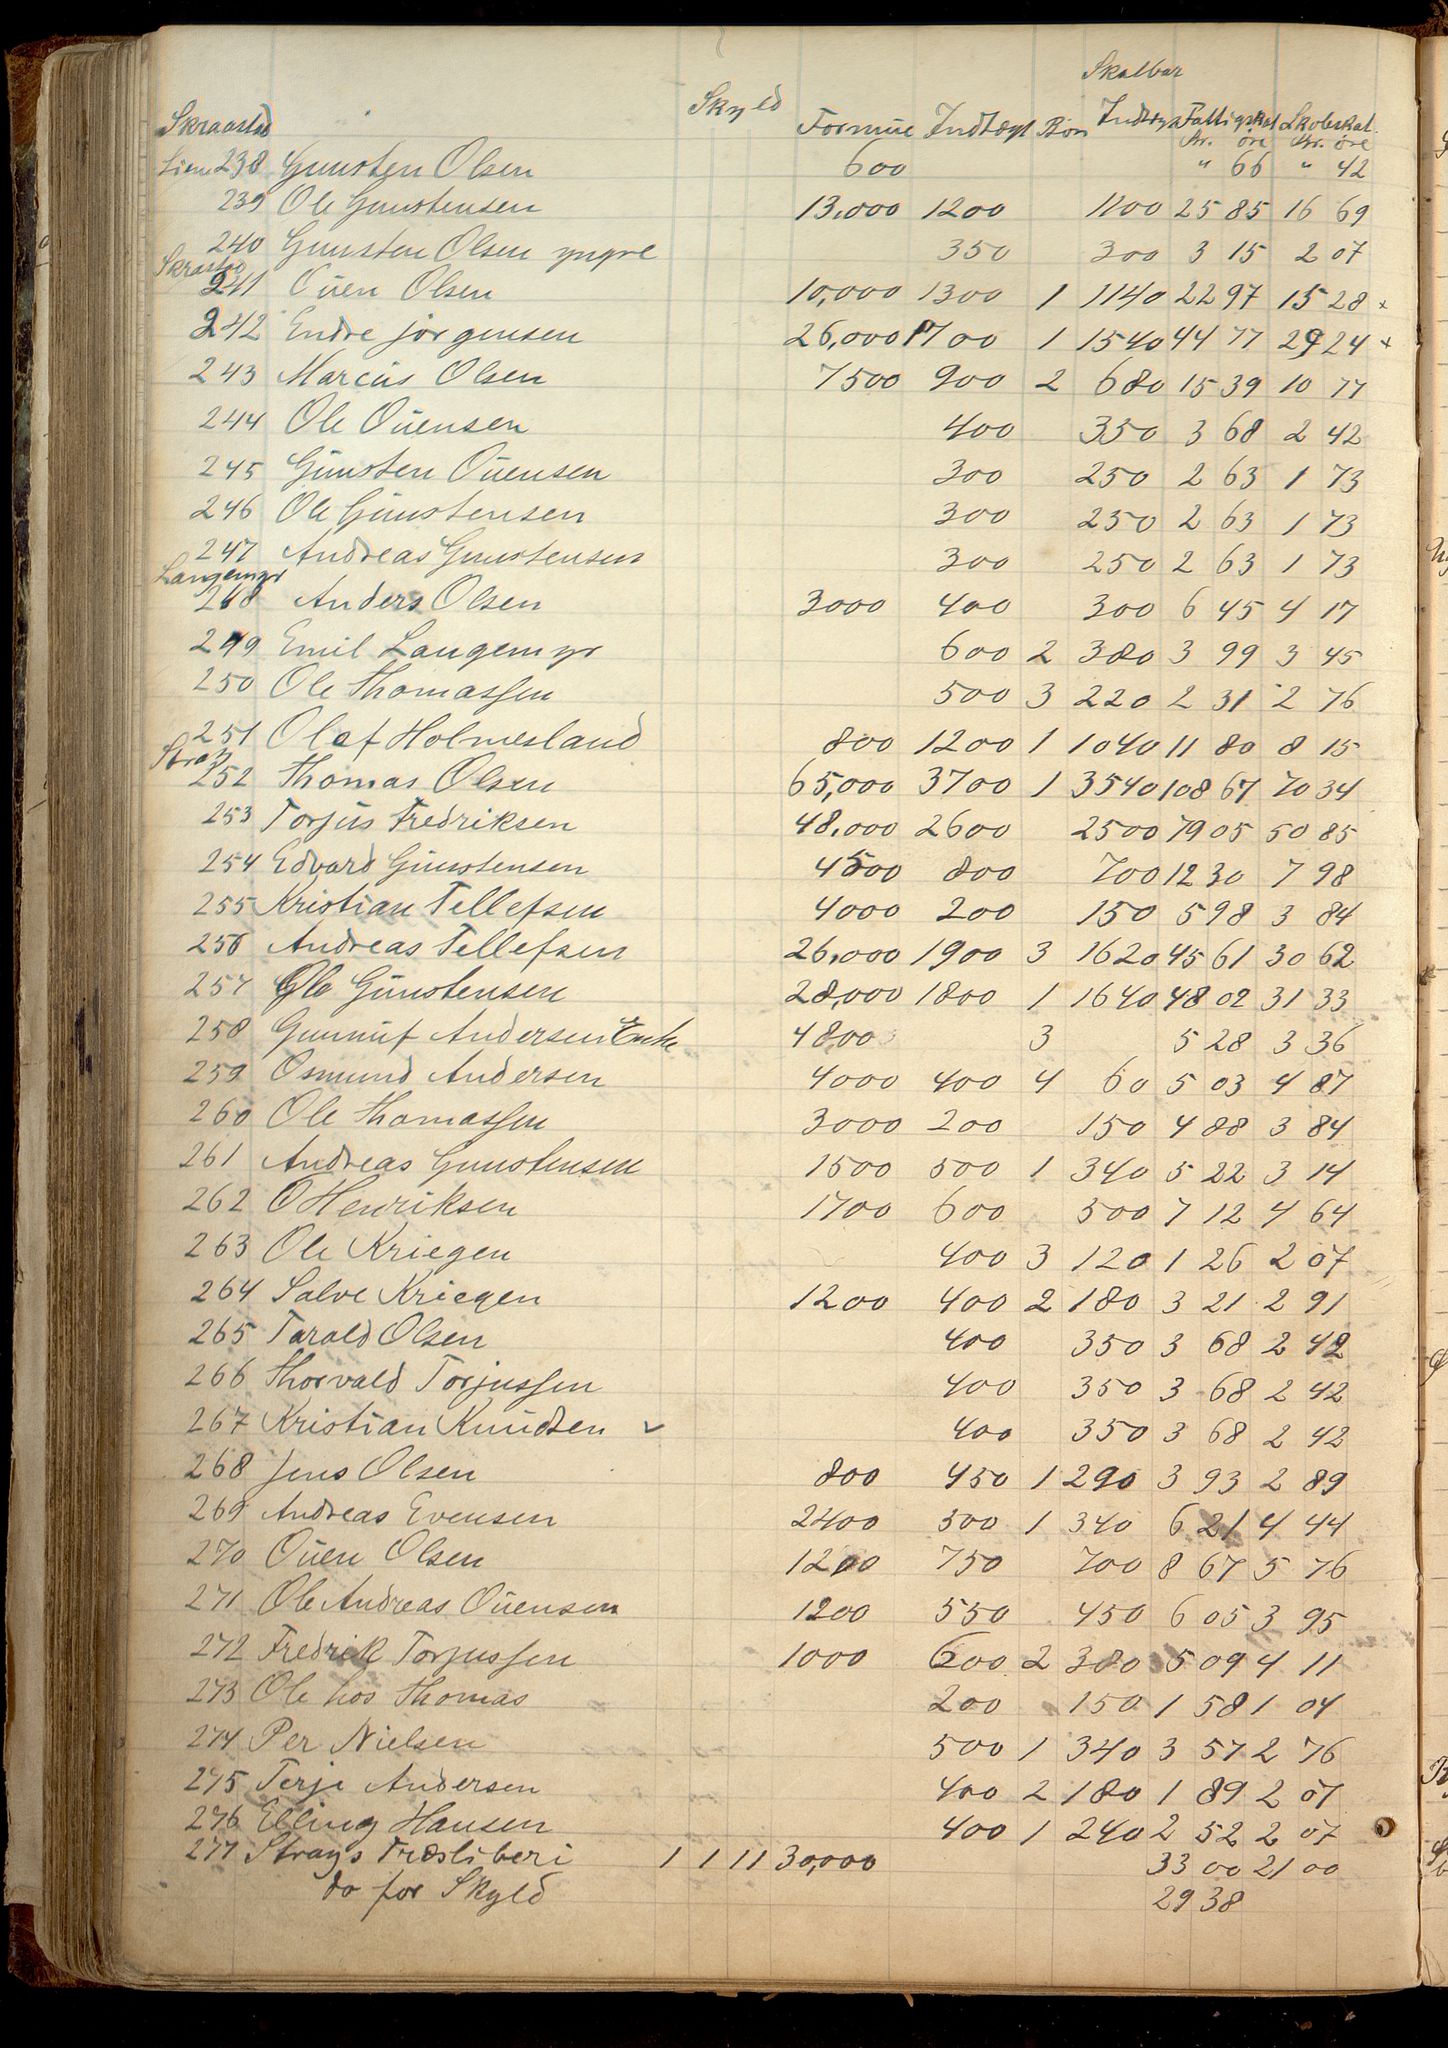 Skatbar
Skyld
Skraastad Formue Indtægt Børn Indtægt Fattigskat Skoleskat
Kr. øre Kr. øre
Lien 238 Gunsten Olsen 600 " 66 " 42
239 Ole Gunstensen 13,000 1200 1100 25 85 16 69
240 Gunsten Olsen yngre 350 300 3 15 2 07
Skrastad
241 Ouen Olsen 10,000 1300 1 1140 22 97 15 28 x
242 Endre Jørgensen 26,000 1700 1 1540 44 77 29 24 x
243 Marcus Olsen 7500 900 2 680 15 39 10 77
244 Ole Ouensen 400 350 3 68 2 42
245 Gunsten Ouensen 300 250 2 63 1 73
246 Ole Gunstensen 300 250 2 63 1 73
247 Andreas Gunstensen 300 250 2 63 1 73
Langemyr
248 Anders Olsen 3000 400 300 6 45 4 17
249 Emil Langemyr 600 2 380 3 99 3 45
250 Ole Thomassen 500 3 220 2 31 2 76
251 Olaf Holmesland 800 1200 1 1040 11 80 8 15
Stray
252 Thomas Olsen 65,000 3700 1 3540 108 67 70 34
253 Torjus Fredriksen 48,000 2600 2500 79 05 50 85
254 Edvard Gunstensen 4500 800 700 12 30 7 98
255 Kristian Tellefsen 4000 200 150 5 98 3 84
256 Andreas Tellefsen 26,000 1900 3 1620 45 61 30 62
257 Ole Gunstensen 28,000 1800 1 1640 48 02 31 33
258 Gunnuf Andersen Enke 4800 3 5 28 3 36
259 Osmund Andersen 4000 400 4 60 5 03 4 87
260 Ole Thomassen 3000 200 150 4 88 3 84
261 Andreas Gunstensen 1500 500 1 340 5 22 3 14
262 O Henriksen 1700 600 500 7 12 4 64
263 Ole Kriegen 400 3 120 1 26 2 07
264 Salve Kriegen 1200 400 2 180 3 21 2 91
265 Tarald Olsen 400 350 3 68 2 42
266 Thorvald Torjussen 400 350 3 68 2 42
267 Kristian Knudsen ✓ 400 350 3 68 2 42
268 Jens Olsen 800 450 1 290 3 93 2 89
269 Andreas Evensen 2400 500 1 340 6 21 4 44
270 Ouen Olsen 1200 750 700 8 67 5 76
271 Ole Andreas Ouensen 1200 550 450 6 05 3 95
272 Fredrik Torjussen 1000 600 2 380 5 09 4 11
273 Ole hos Thomas 200 150 1 58 1 04
274 Per Nielsen 500 1 340 3 57 2 76
275 Terje Andersen 400 2 180 1 89 2 07
276 Elling Hansen 400 1 240 2 52 2 07
277 Strays Træsliberi 1 1 11 30,000 33 00 21 00
do for Skyld 29 38